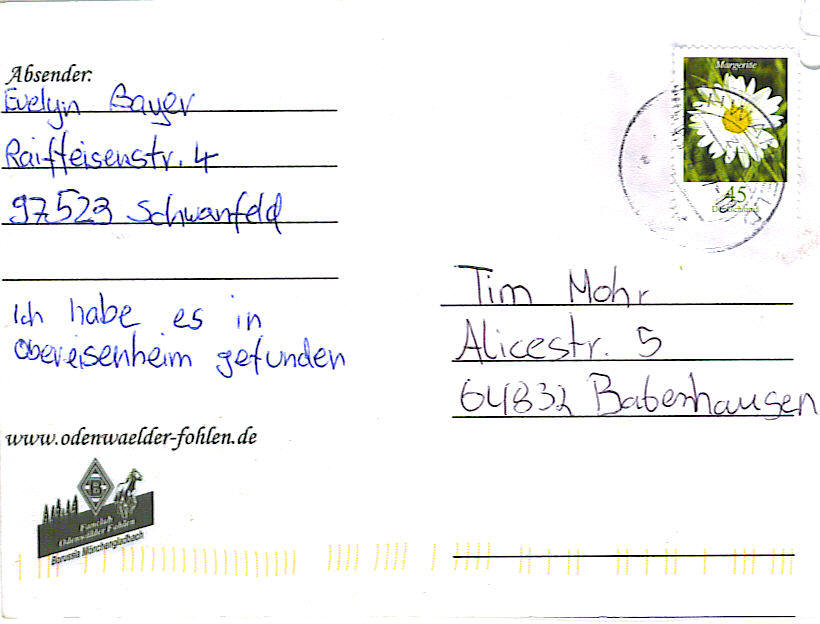 Absender:
Evelyn Bayer
Raiffeisenstr. 4
97523 Schwanfeld
Ich habe es in
Obereisenheim gefunden
www.odenwaelder-fohlen.de
B
Fanclub
Odenwälder Fohlen
Borussia Mönchengladbach
Margerite
45
Deutschland
Tim Mohr
Alicestr. 5
64832 Babenhausen